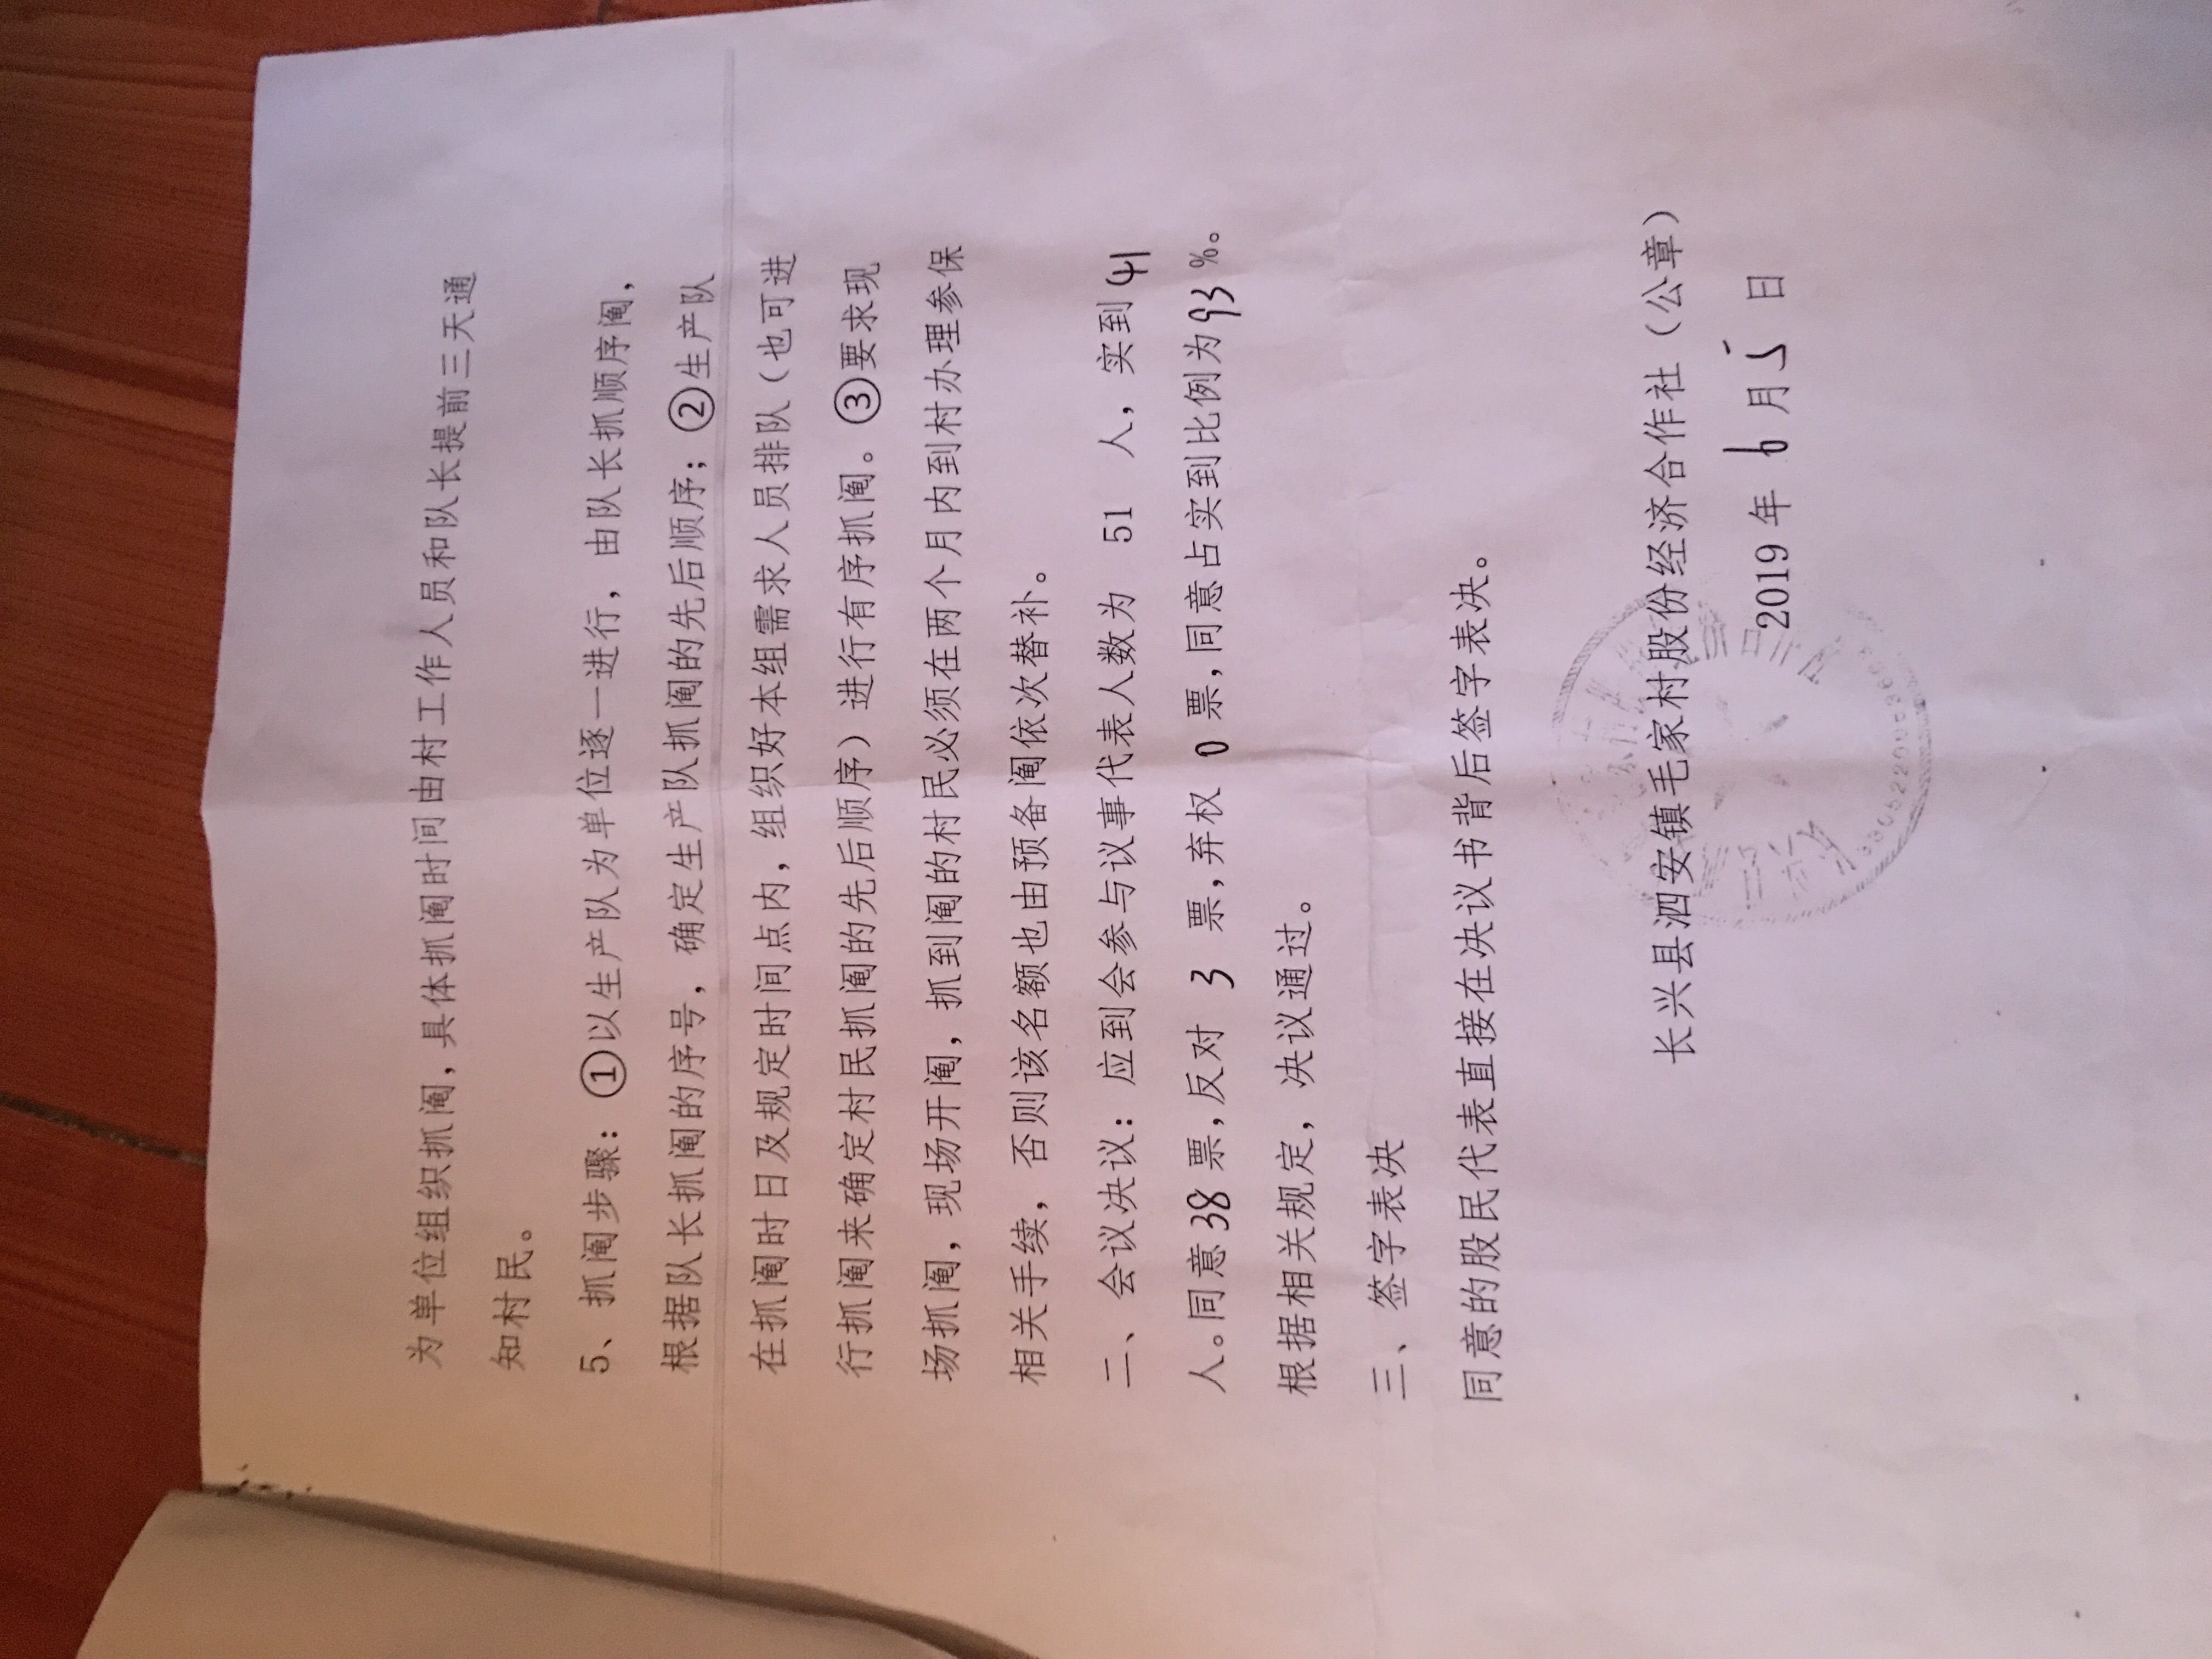 为单位组织抓阄，具体抓阄时间由村工作人员和队长提前三天通
知村民。
5、抓阄步骤：①以生产队为单位逐一进行，由队长抓顺序阄，
根据队长抓阄的序号，确定生产队抓阄的先后顺序；②生产队
在抓阄时日及规定时间点内，组织好本组需求人员排队（也可进
行抓阄来确定村民抓阄的先后顺序）进行有序抓阄。③要求现
场抓阄，现场开阄，抓到阄的村民必须在两个月内到村办理参保
相关手续，否则该名额也由预备阄依次替补。
二、会议决议：应到会参与议事代表人数为 51 人，实到41
人。同意38票，反对 3 票，弃权 0 票，同意占实到比例为93%。
根据相关规定，决议通过。
三、签字表决
同意的股民代表直接在决议书背后签字表决。
长兴县泗安镇毛家村股份经济合作社（公章）
2019年 6月5 日